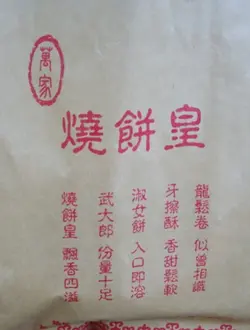 萬家
燒餅皇
龍鬆卷 似曾相識
牙擦酥 香甜鬆軟
淑女餅 入口即溶
武大郎 份量十足
燒餅皇 飄香四溢